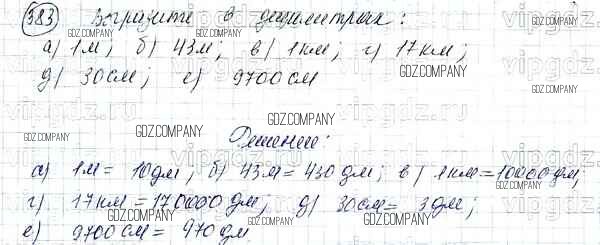 383 Выразите в дециметрах:
а) 1м; б) 43м; в) 1км; г) 17км;
д) 30см; е) 9700см
Решение:
а) 1м = 10дм; б) 43м = 430дм; в) 1км = 10000дм;
г) 17км = 170000дм; д) 30см = 3дм;
е) 9700см = 970дм
GDZ.COMPANY
vipgdz.ru